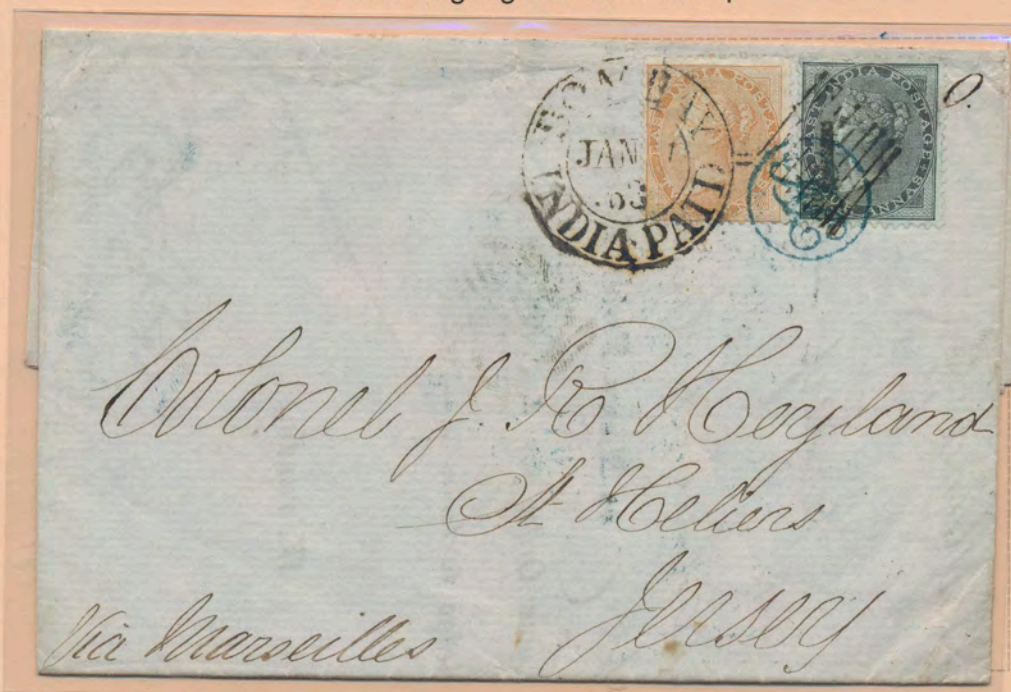 BOMBAY
JAN
63
INDIA PAID
EAST INDIA POSTAGE
EAST INDIA POSTAGE
ANNAS
1
O.
Colonel J. R Heyland
St Heliers
Jersey
Via Marseilles